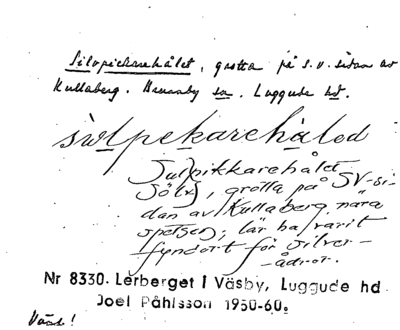 Silvpickarehålet, grotta på s.v. sidan av
Kullaberg. Brunnby sn. Luggude hd.
siwlpekarehåled
grotta på SV-si-
dan av Kullaberg nära
spetsen; lär ha varit
fyndort för silver-
ådror.
Nr 8330. Lerberget i Väsby, Luggude hd.
Joel Påhlsson 1950-60.
Vänd!